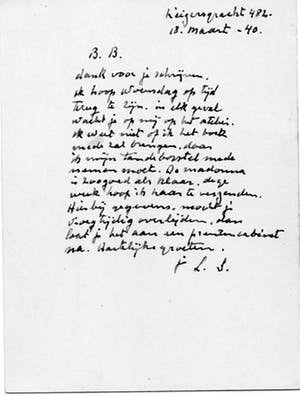 Keizersgracht 482.
18. maart - 40.
B. B.
dank voor je schrijven.
ik hoop woensdag op tijd
terug te zijn. in elk geval
wacht je op mij op het atelier.
ik weet niet of ik het boek
mede zal brengen, daar
ik mijn tandeborstel mede
nemen moet. De madonna
is zoogoed als klaar. deze
week hoop ik haar te verzenden.
Hierbij gegevens. mocht je
vroegtijdig overlijden, dan
laat je het aan een prentencabinet
na. Hartelijke groeten.
L. S.